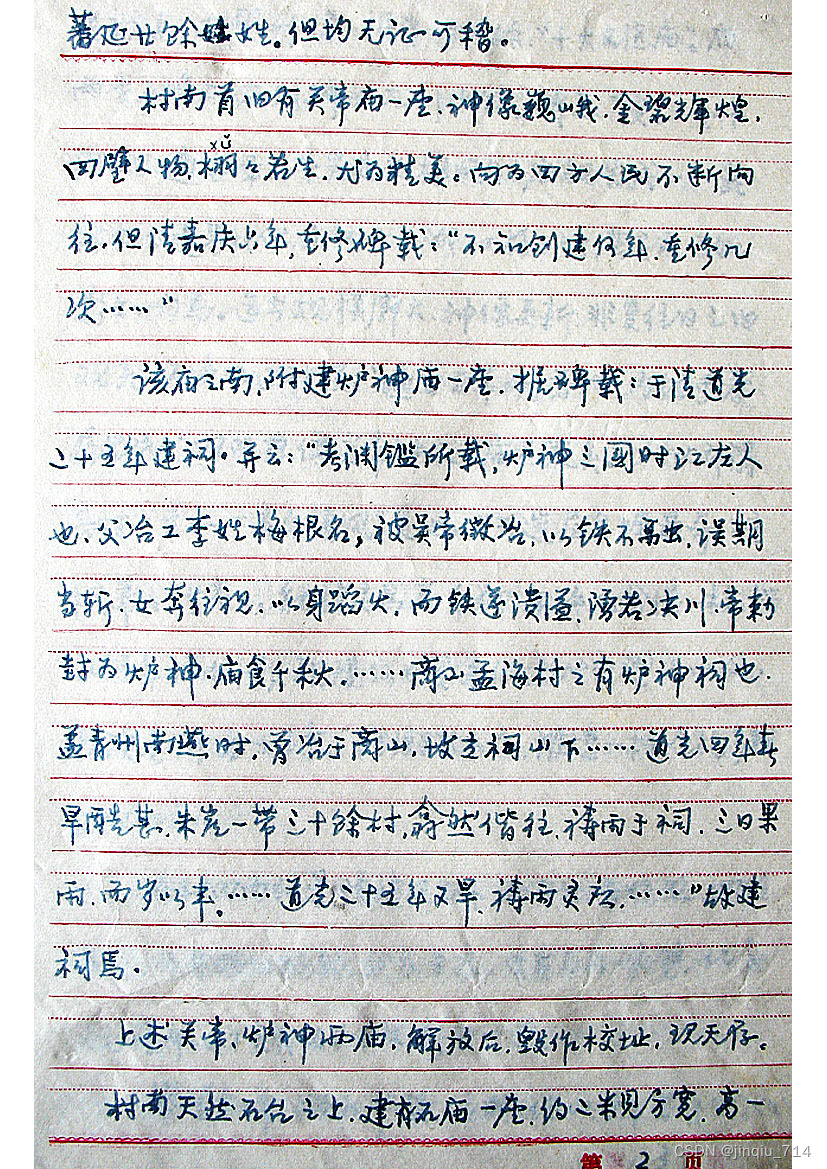 蕃延廿馀姓。但均无证可稽。
村南首旧有关帝庙一座，神像巍峨，金碧辉煌，
xǔ
四壁人物，栩々若生，尤为精美。向为四方人民不断向
往，但清嘉庆六年，重修碑载：“不知创建何年，重修几
次……”
该庙之南，附建炉神庙一座，据碑载：于清道光
二十五年建祠。并云：“考渊鑑所载，炉神三国时江左人
也，父冶工李姓梅根名，被吴帝徵冶，以铁不离出，误期
当斩，女奔往视，以身蹈火，而铁遂溃溢，涌若决川，帝勅
封为炉神，庙食千秋，……商山孟海村之有炉神祠也，
盖青州南燕时，曾冶于商山，故立祠山下……道光四年春
旱酷甚，朱崖一带三十馀村，翕然偕往，祷雨于祠，三日果
雨，而岁以丰。……道光二十五年又旱，祷雨灵应，……”故建
祠焉。
上述关帝、炉神两庙，解放后，毁作校址，现无存。
村南天然石台之上，建有石庙一座，约二米见方宽，高一
第 2 页
CSDN @jinqiu_714